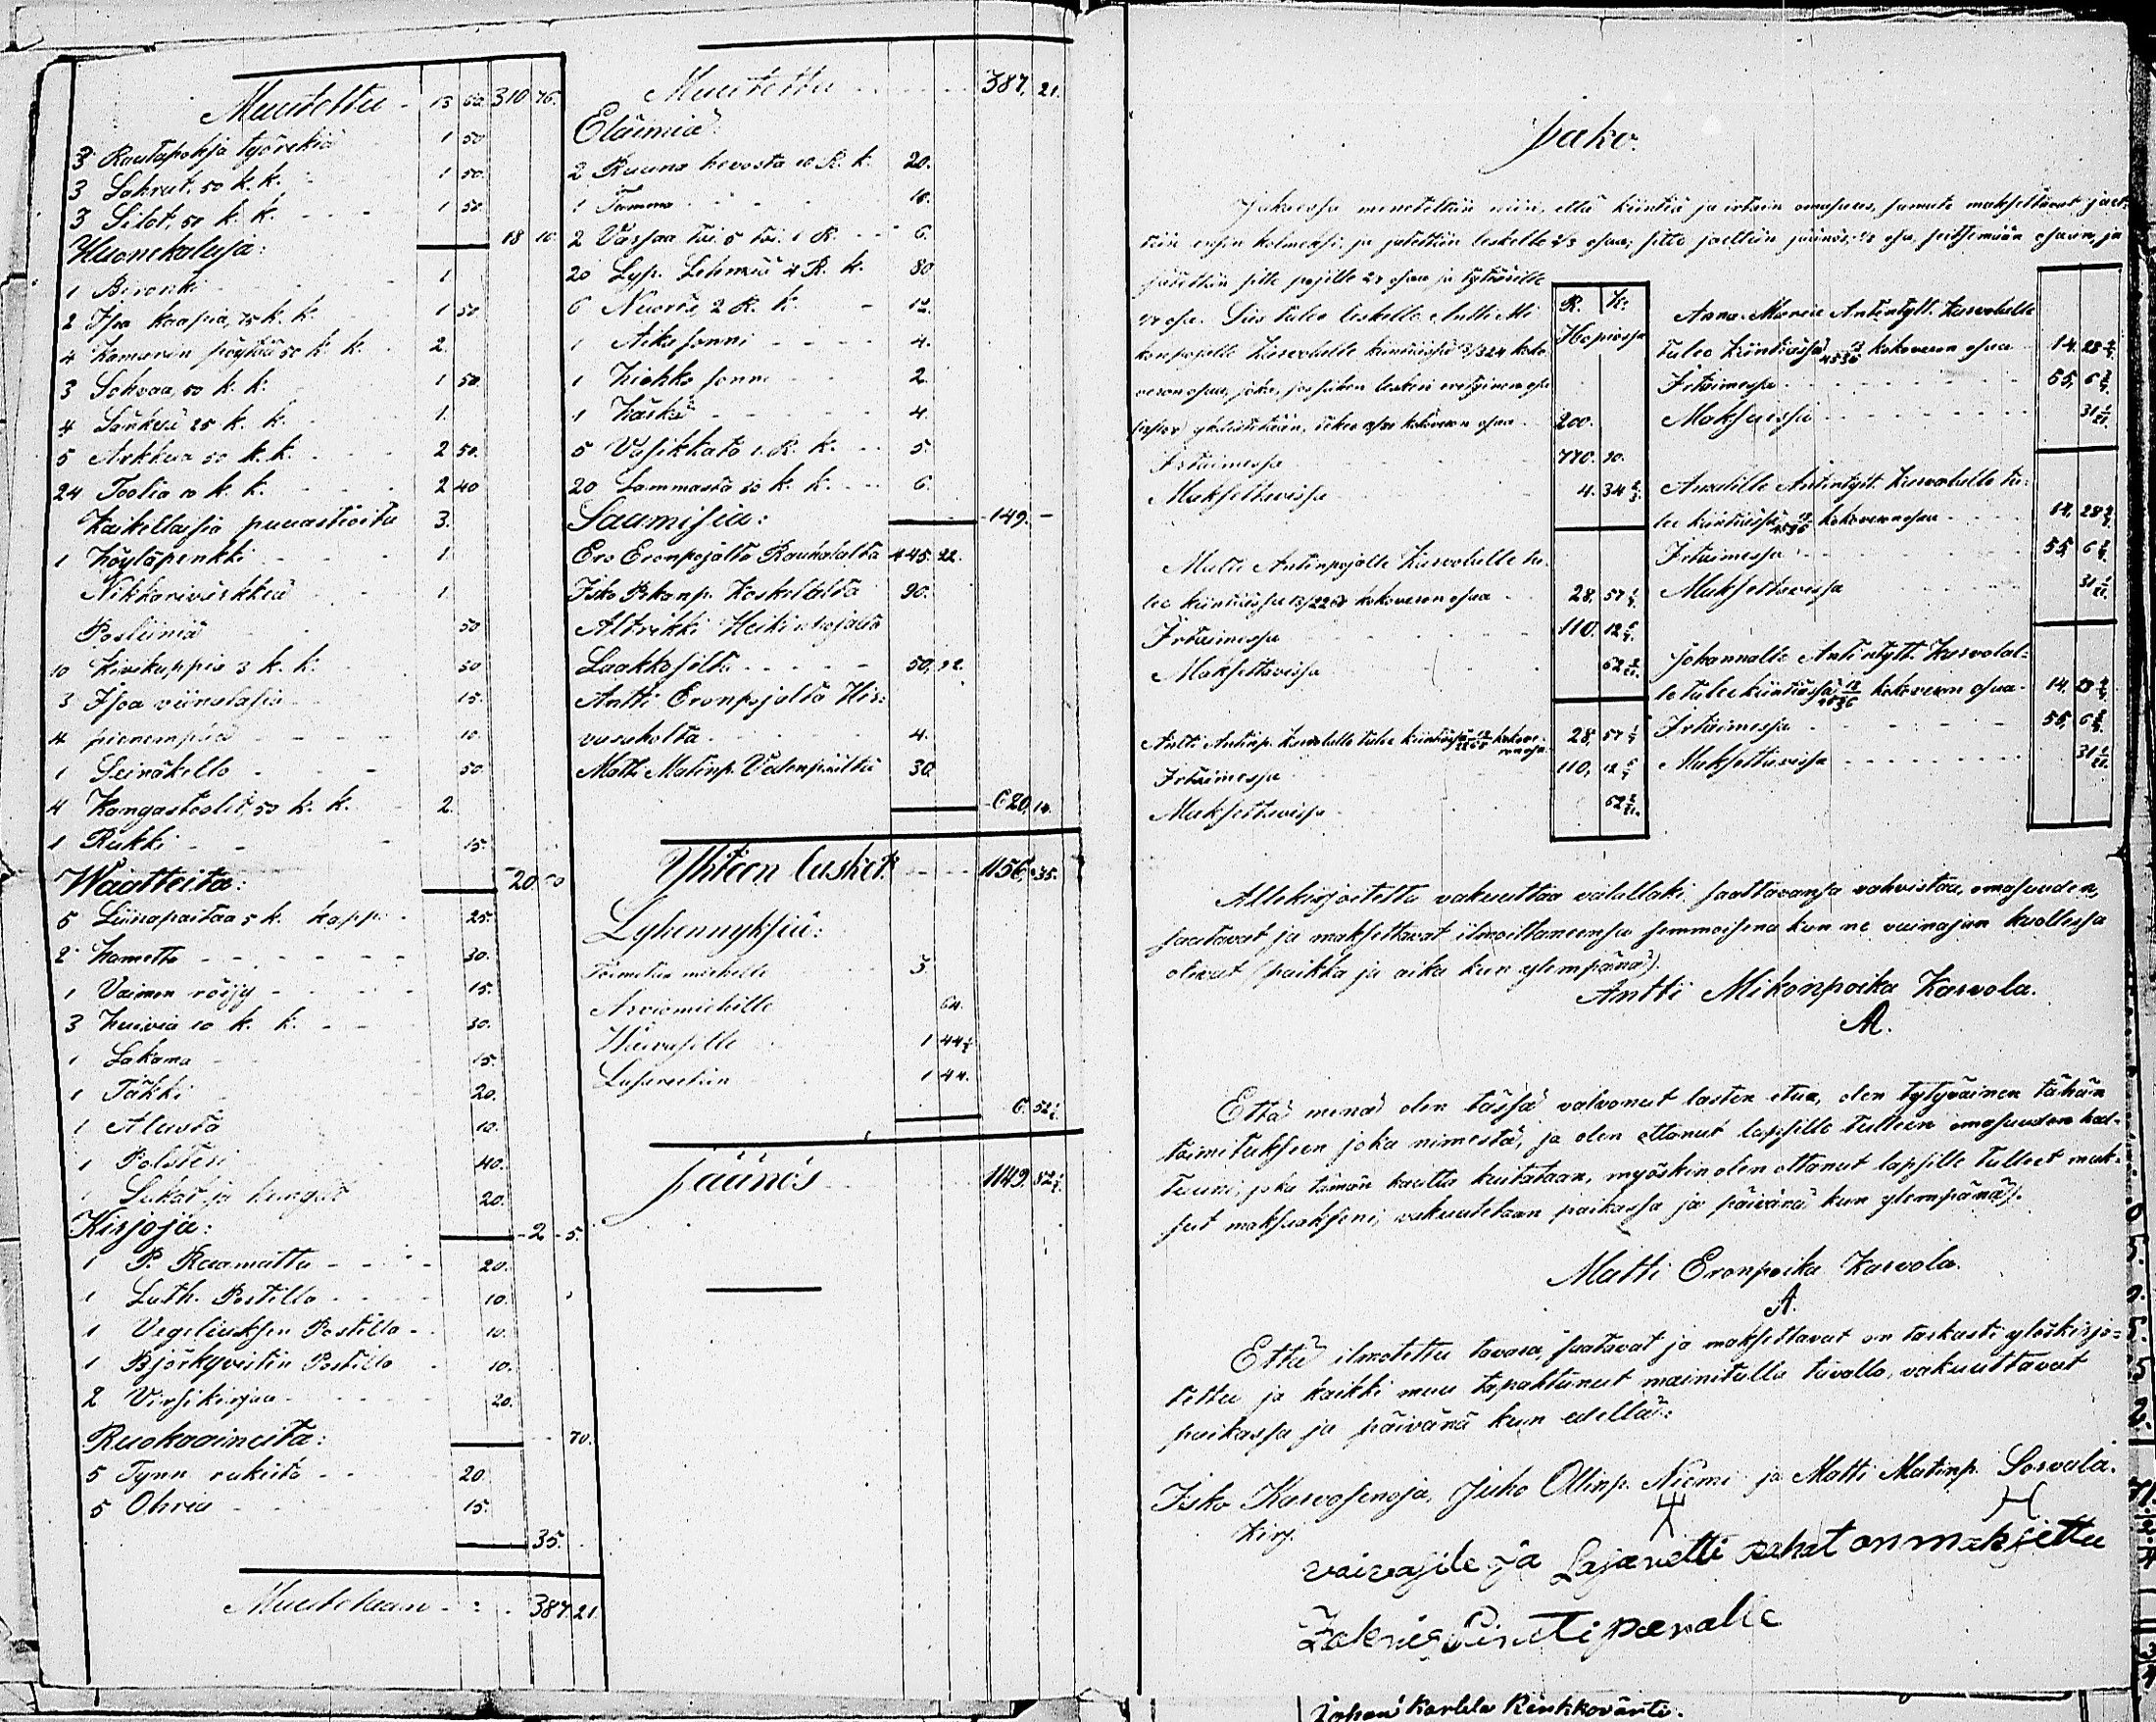 Muutettu - 13 60. 310 76.
3 Rautapohja työrekiä 1 50
3 Lohrut, 50 k. k. 1 50.
3 Silot, 50 k. k. - - - 1 50
18 10.
Huonekaluja:
1 Bironki - - - - 1.
2 Isoa kaapia, 75 k. k. 1 50
4 Kamarin pöytää 50 k. k. 2.
3 Sohvaa, 50 k. k. 1 50.
4 Sänkyä 25 k. k. 1.
5 Arkkua 50 k. k. - - - 2 50.
24 Toolia 10 k. k. - - - 2 40
Kaikellaisia puuastioita 3.
1 Höyläpenkki - - - 1.
Nikkarivärkkiä 1.
Posliiniä 50
10 Kivikuppia 3 k. k. 30
3 Isoa viinalasia 15.
4 pienempiä - - - - 10.
1 Seinäkello - - - 50.
4 Kangastoolit, 50 k. k. 2.
1 Rukki - - - 15.
20 50
Waatteita:
5 Liinapaitaa 5 k. kapp. 25.
2 Hametta - - - - - - 30.
1 Vaimon röijy - - - - 15.
3 Huivia 10 k. k. - - - 30.
1 Lakana 15.
1 Täkki 20.
1 Alusta 10.
1 Polsteri 40.
Sukat ja kengät 20.
- 2 - 5.
Kirjoja:
1 P. Raamattu - - - 20.
1 Luth. Postilla - - - 10.
1 Vegeliuksen Postilla - 10.
1 Björkqvistin Postilla 10.
2 Virsikirjaa - - - - 20.
70.
Ruokaaineita:
5 Tynn rukiita - - - 20.
5 Ohria - - - - 15.
35.
Muutetaan - : - 387. 21.
Muutettu - - - - - 387. 21.
Eläimiä:
2 Ruuna hevosta 10 R. k. 20.
1 Tamma - - - - 10.
2 Varsaa toi. 5 toi. 1 R. - - 6.
20 Lyp. Lehmää 4 R. k. 80
6 Nuorta, 2 R. k. - 12.
1 Aika sonni - - - - 4.
1 Kiehko sonni - - 2.
1 Härkä - - - - - - 4.
5 Vasikkata 1. R. k. - - 5.
20 Lammasta 30 k. k. - - 6.
- 149. -
Saamisia:
Ero Eronpojalta Raukalalta 445. 22.
Isko Pekanp. Koskelalta 90.
Altrekki Heikinpojalta
Laakkosilta - - - - - 50, 92
Antti Eronpojalta Hir=
vuaholta - - - - - 4.
Matti Matinp. Vedenpäältä 30.
- 620, 14.
Yhteen lasket: - - - 1156, 35.
Lyhennyksiä:
Toimitus miehelle 3.
Arviomiehille 64.
Waivasille 1 44½
Lasarettiin 1 44.
6. 52½
Jäänös - - - 1149. 82½
Jako.
Jakaessa meneteltiin niin, että kiintiä ja irtain omasuus, samate maksettavat jaet=
tiin ensin kolmeksi, ja jätettiin leskelle 2/3 osaa, sitte jaettiin jäänös 1/3 osa seittemään osaan, ja
jätettiin sille pojille 2/7 osaa ja tyttärille
1/7 osa. Siis tulee leskelle Antti Mi=
konpojalle Karvolalle kiintiässä 13/324 koko
veron osaa, joka, jos siihen lesken erityinen osa
yhdistetään, tekee kokoveron osaa - 200.
Irtaimessa 770. 90.
Maksettavissa 4. 34⅔.
R. K:
Hopiassa
Matti Antinpojalle Karvolalle tu=
lee kiintiässä 13/2268 kokoveron osaa - 28. 57 1/7
Irtaimessa 110. 12 6/7.
Maksettavissa 62 2/21.
Antti Antinp. Karvolalle tulee kiintiässä 13/2268 kokove=
ron osaa 28, 57 1/7
Irtaimessa 110, 12 6/7
Maksettavissa 62 2/21.
Anna Maria Antintytt. Karvolalle
tulee kiintiässä 13/4536 kokoveron osaa - 14. 28 4/7.
Irtaimessa - - - - - 55, 6 3/7.
Maksuissa - - - - - 31 1/21.
Amalille Antintytt. Karvolalle tu=
lee kiintiässä 13/4536 kokoveron osaa - 14, 28 4/7.
Irtaimessa - - - - - 55, 6 3/7.
Maksettavissa 31 1/21.
Johannalle Antintytt. Karvolal=
le tulee kiintiässä 13/4536 kokoveron osaa - 14. 28 4/7.
Irtaimessa - - - - - 55, 6 3/7.
Maksettavissa - - - - - 31 1/21.
Allekirjoitettu vakuuttaa valallaki saattavansa vahvistaa, omasuuden,
saatavat ja maksettavat ilmoittaneensa semmoisena kun ne vainajan kuollessa
olivat (paikka ja aika kun ylempänä).
Antti Mikonpoika Karvola.
A.
Että minä olen tässä valvonut lasten etua, olen tytyväinen tähän
toimitukseen joka nimestä, ja olen ottanut lapsille tulleen omasuuden hal=
tuuni, joka tämän kautta kuitataan, myöskin olen ottanut lapsille tulleet mak=
sut maksaakseni, vakuutetaan paikassa ja päivänä kun ylempänä).
Matti Eronpoika Karvola.
A.
Että ilmotettu tavara, saatavat ja maksettavat on tarkasti ylöskirjo=
tettu ja kaikki muu tapahtunut mainitulla tavalla, vakuuttavat
paikassa ja päivänä kun edellä:
Isko Karvosenoja, Juho Ollinp. Niemi ja Matti Matinp. Sorvala.
Kirj.
vaivasile ja Lasaretti rahat on maksettu
Zakris Pinttiperalle
Johan Karlela Kirkkovärti.